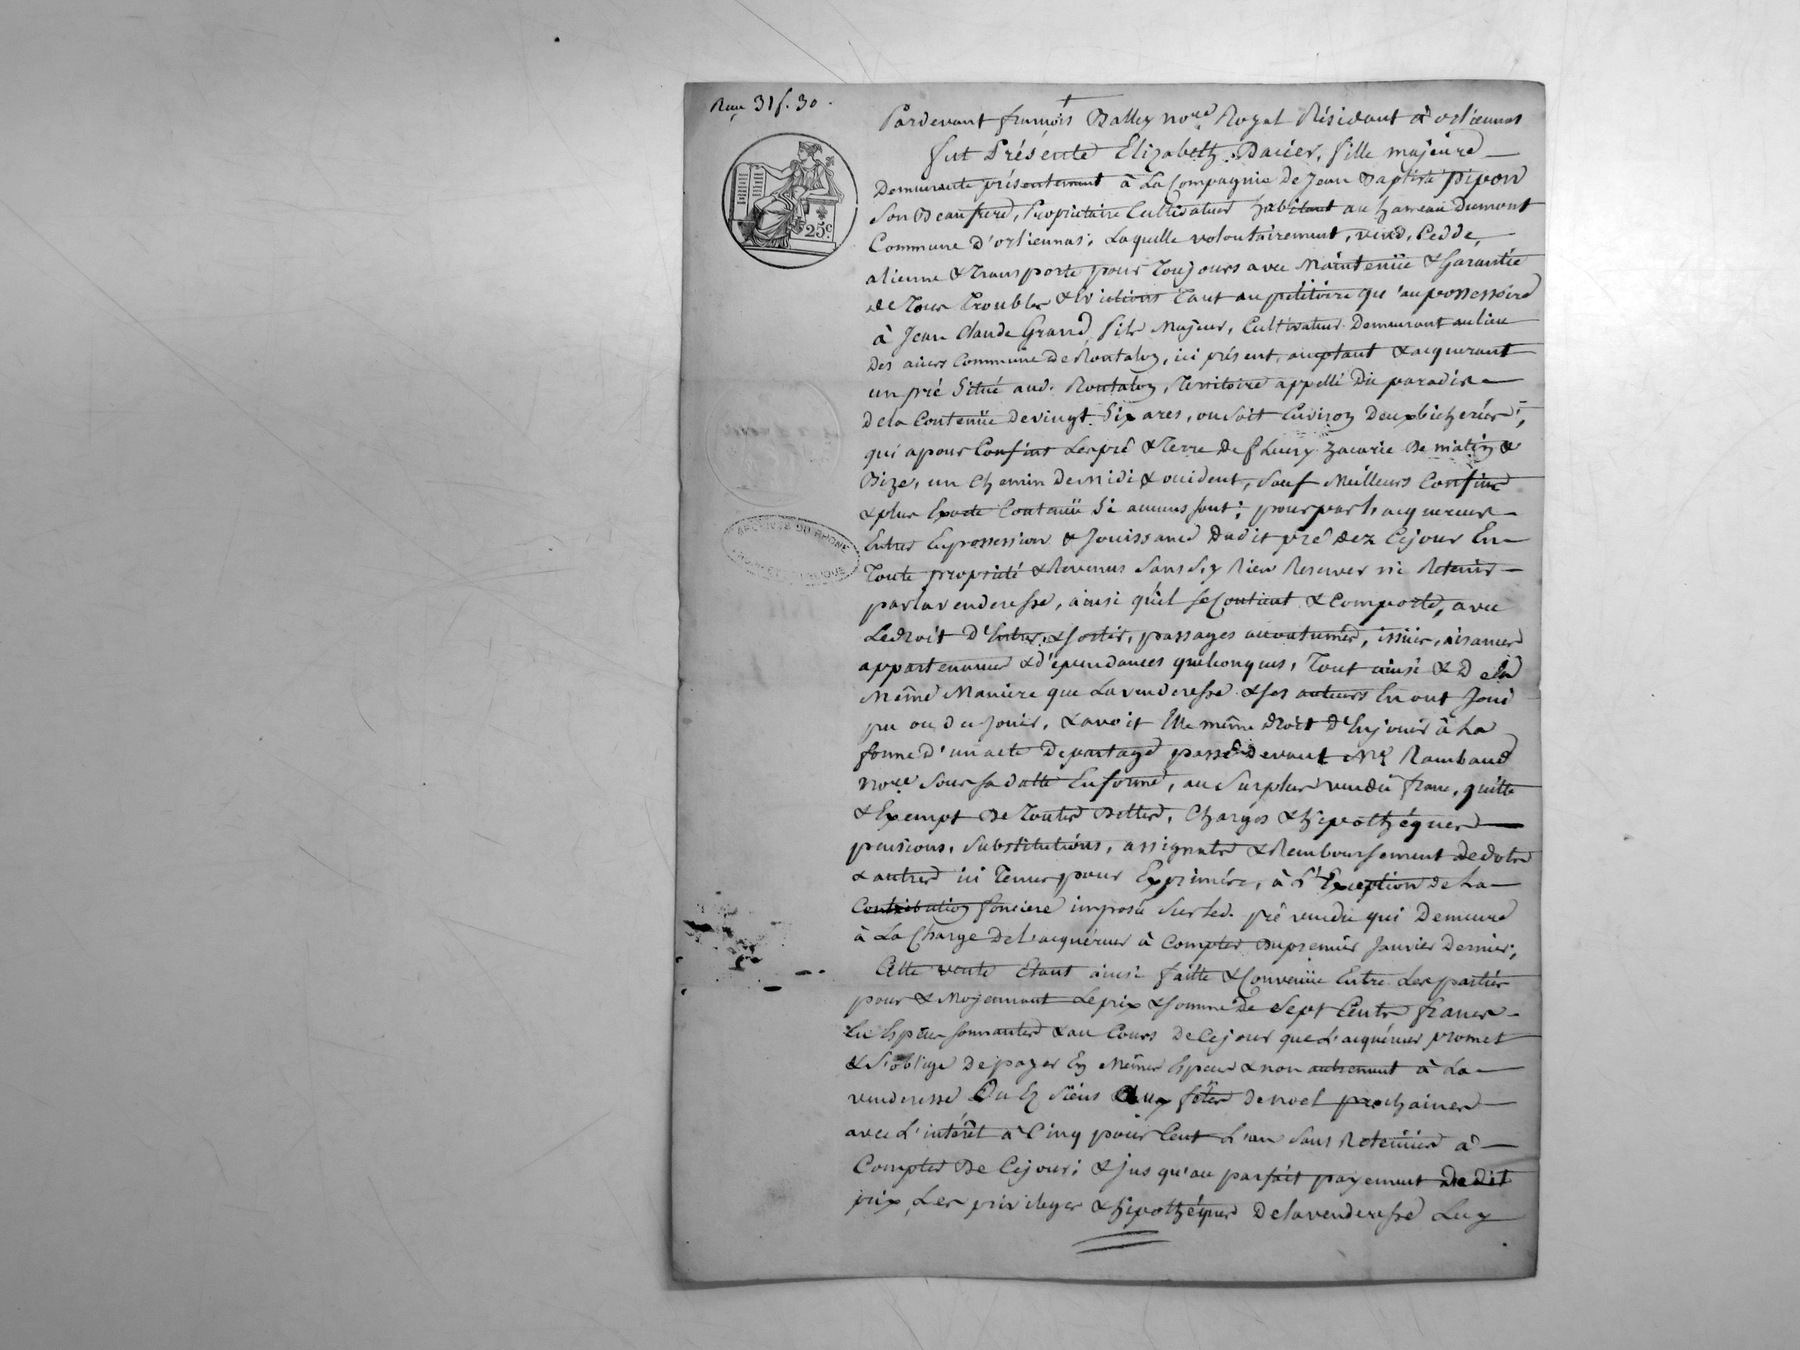 Reçu 31f. 30.
25c.
ARCHIVES DU RHÔNE
Pardevant françois Balley nore. Royal Résidant à orliennas
fut Présente Elizabeth Dacier, fille majeure
Demeurante présentement à La Compagnie de Jean Baptiste pipon
Son Beaufrere, Propriétaire Cultivateur habitant au hameau Dumont
Commune d'orliennas; Laquelle volontairement, vend, Cedde,
alienne & Transporte pour Toujours avec Maintenüe & Garantie
de Tous Troubles & Evictions Tant au pétitoire qu'au possessoire
à Jean Claude Grand, fils Majeur, Cultivateur Demeurant au lieu
Des Commune De Rontalon, ici présent, acceptant & acquerant
un pré Situé aud. Rontalon, Territoire appellé Du paradis
de la Contenüe de vingt Six ares, ou Soit Environ Deux bicherées;
qui a pour Confins Les pré & Terre de fleury Zacarie De matin &
Bize, un Chemin de midi & occident, Sauf Meilleurs Confins
& plus Exacte Contenüe Si aucuns Sont; pour par L'acquereur
Entrer En possession & Jouissance Dudit pré dez Cejour En
Toute propriété & Revenus Sans S'y Rien Reserver ni Retenir
par la venderesse, ainsi qu'il Se Contient & Comporte, avec
Ledroit d'Entrer, & Sortir, passages accoutumés, issües, aisances
appartenances & d'épendances quelconques, Tout ainsi & De la
Même Maniere que La venderesse & Ses auteurs En ont Joui
pu ou du Jouir, & avoit Elle même droit d'En jouir à La
forme d'un acte De partage passé Devant Me. Rambaud
nore. Sous Sa datte En forme, au Surplus vendu franc, quitte
& Exempt De Toutes Dettes, Charges & hipothéques
pensions, Substitutions, assignats & Remboursement de dots
& autres ici Tenus pour Exprimés, à L'Exception de La
Contribution fonciere imposée Sur led. pré vendu qui Demeure
à La Charge De L'acquéreur à Compter Du premier Janvier Dernier;
Cette vente Etant ainsi faitte & Convenüe Entre Les parties
pour & Moyennant Le prix & Somme De Sept Cents francs
En Especes Sonnantes & au Cours de Cejour que L'acquéreur promet
& S'oblige De payer En Mêmes Especes & non autrement à La
venderesse Ou Ez Siens Aux fêtes de noel prochaines
avec L'intérêt à Cinq pour Cent L'an Sans Retenüe à
Compter De Cejour; & jusqu'au parfait payement dudit
prix, Les privileges & hipothéques De la venderesse Luy